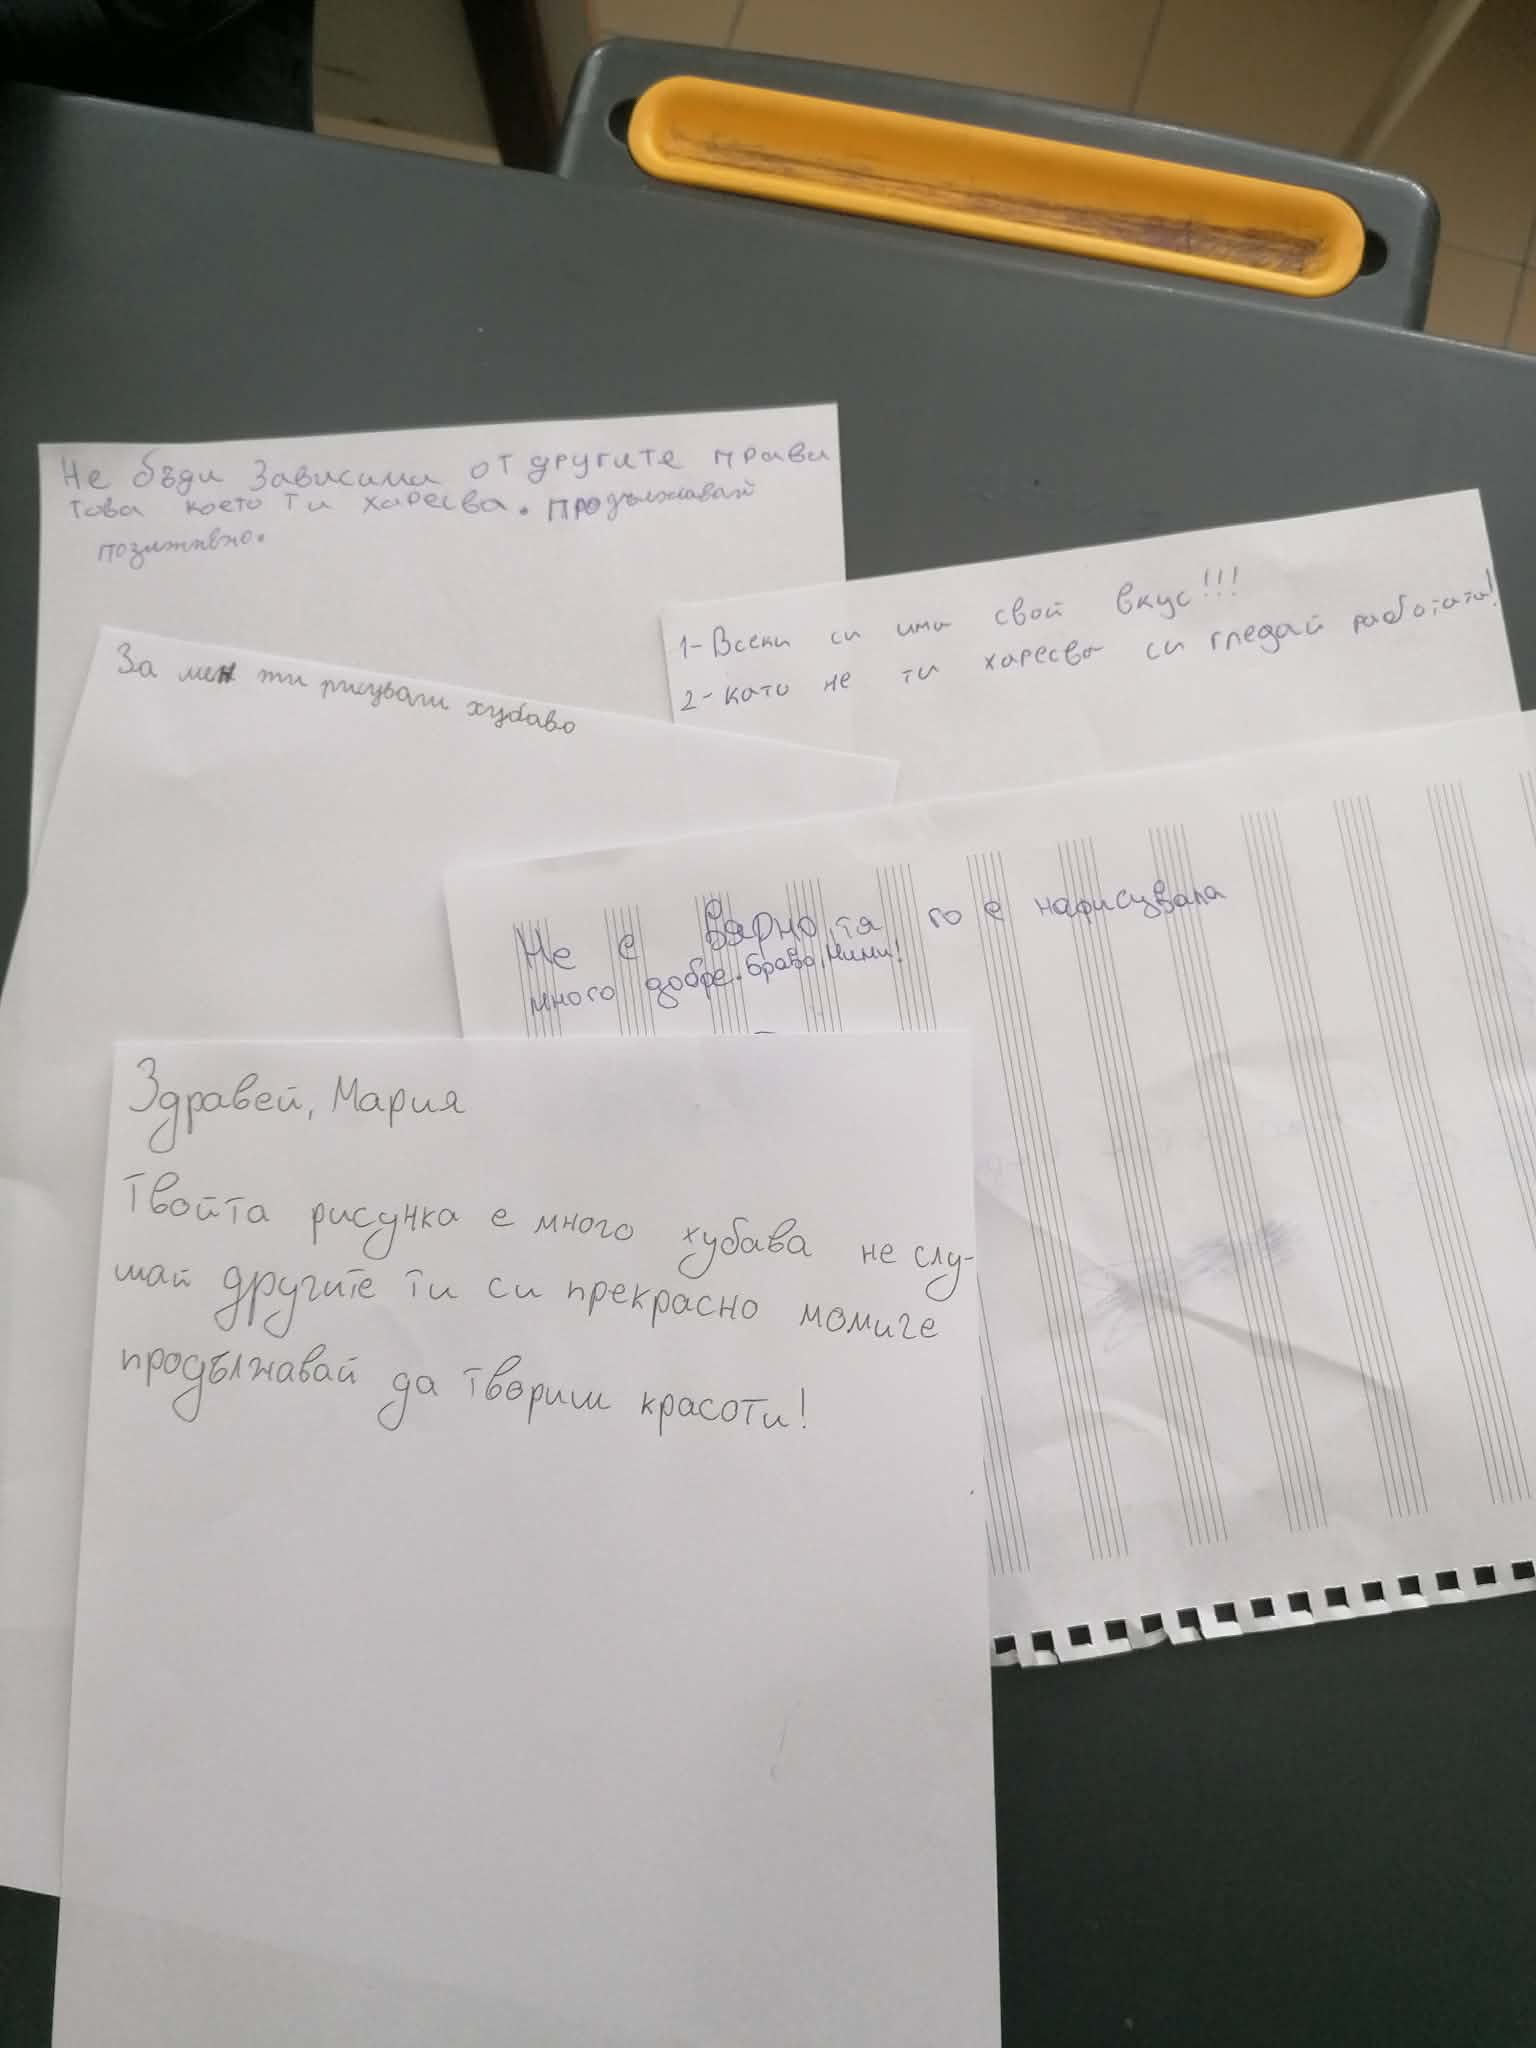 Не бъди зависима от другите прави
това което ти харесва. Продължавай
позитивно.
1-Всеки си има свой вкус!!!
2-като не ти харесва си гледай работата!
За мен ти рисуваш хубаво
Не е вярно, тя го е нарисувала
много добре. Браво, Мими!
Здравей, Мария
Твойта рисунка е много хубава не слу-
шай другите ти си прекрасно момиче
продължавай да твориш красоти!